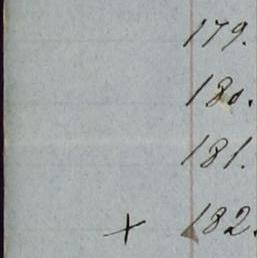 179.
180.
181.
+ 182.